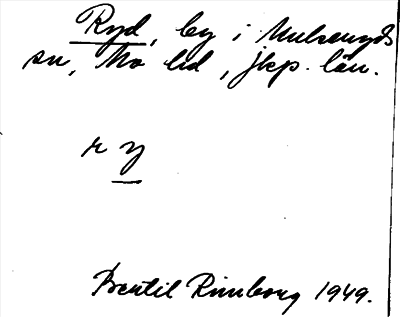 Ryd, by i Mulseryds
sn, Mo hd, jkp. län.
r y
Bertil Rimborg 1949.